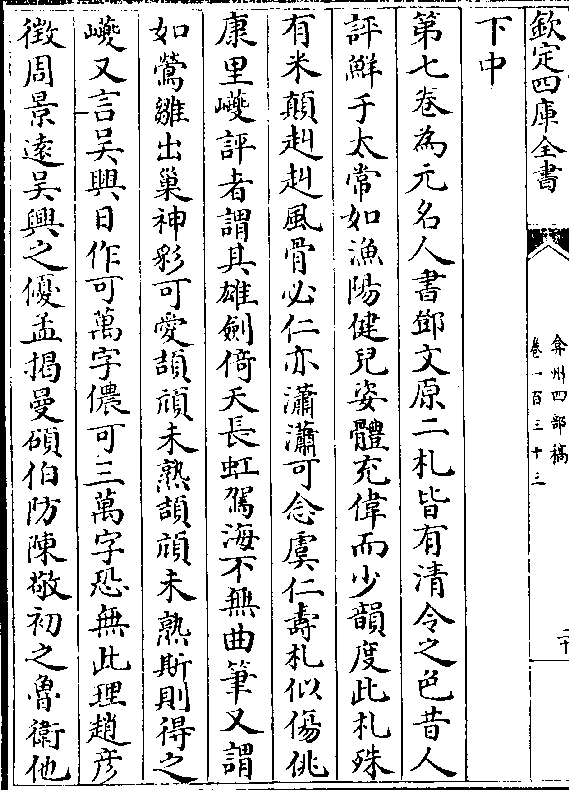 欽定四庫全書
弇州四部稿
卷一百三十三
二十
下中
第七卷為元名人書鄧文原二札皆有清令之色昔人
評鮮于太常如漁陽健兒姿體充偉而少韻度此札殊
有米顛赳赳風骨必仁亦瀟瀟可念虞仁壽札似傷佻
康里巎評者謂其雄劍倚天長虹駕海不無曲筆又謂
如鶯雛出巢神彩可愛頡頏未熟頡頏未熟斯則得之
巎又言吴興日作可萬字儂可三萬字恐無此理趙彦
徴周景逺吴興之優孟揭曼碩伯防陳敬初之魯衛他